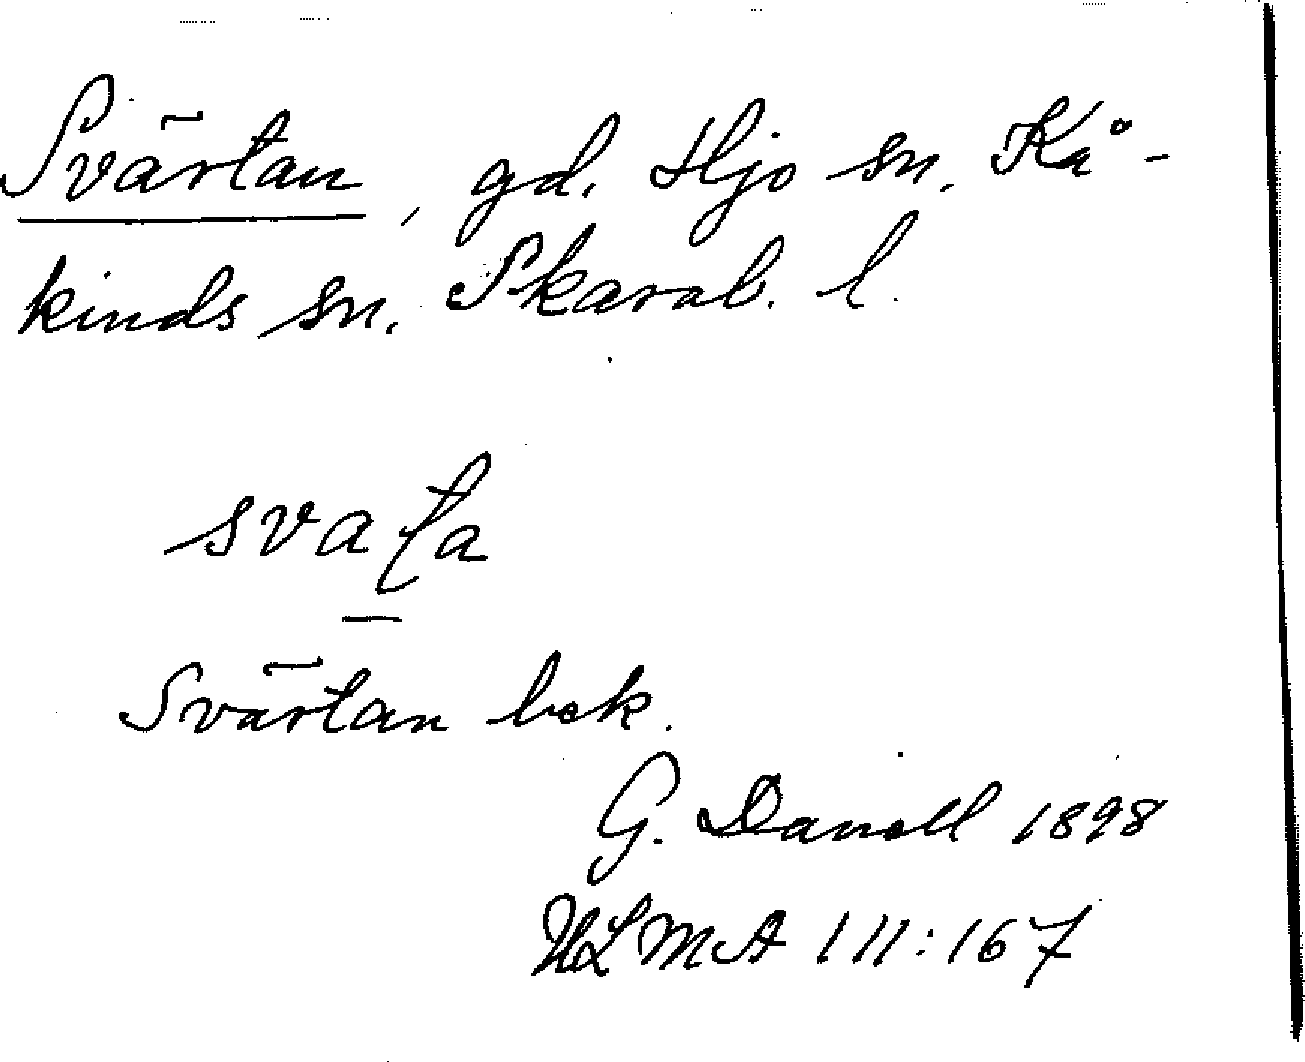 Svärtan, gd. Hjo sn. Kå-
kinds sn. Skarab. l.
svaťa
Svärtan bek.
G. Danell 1898
ULMA 111:167